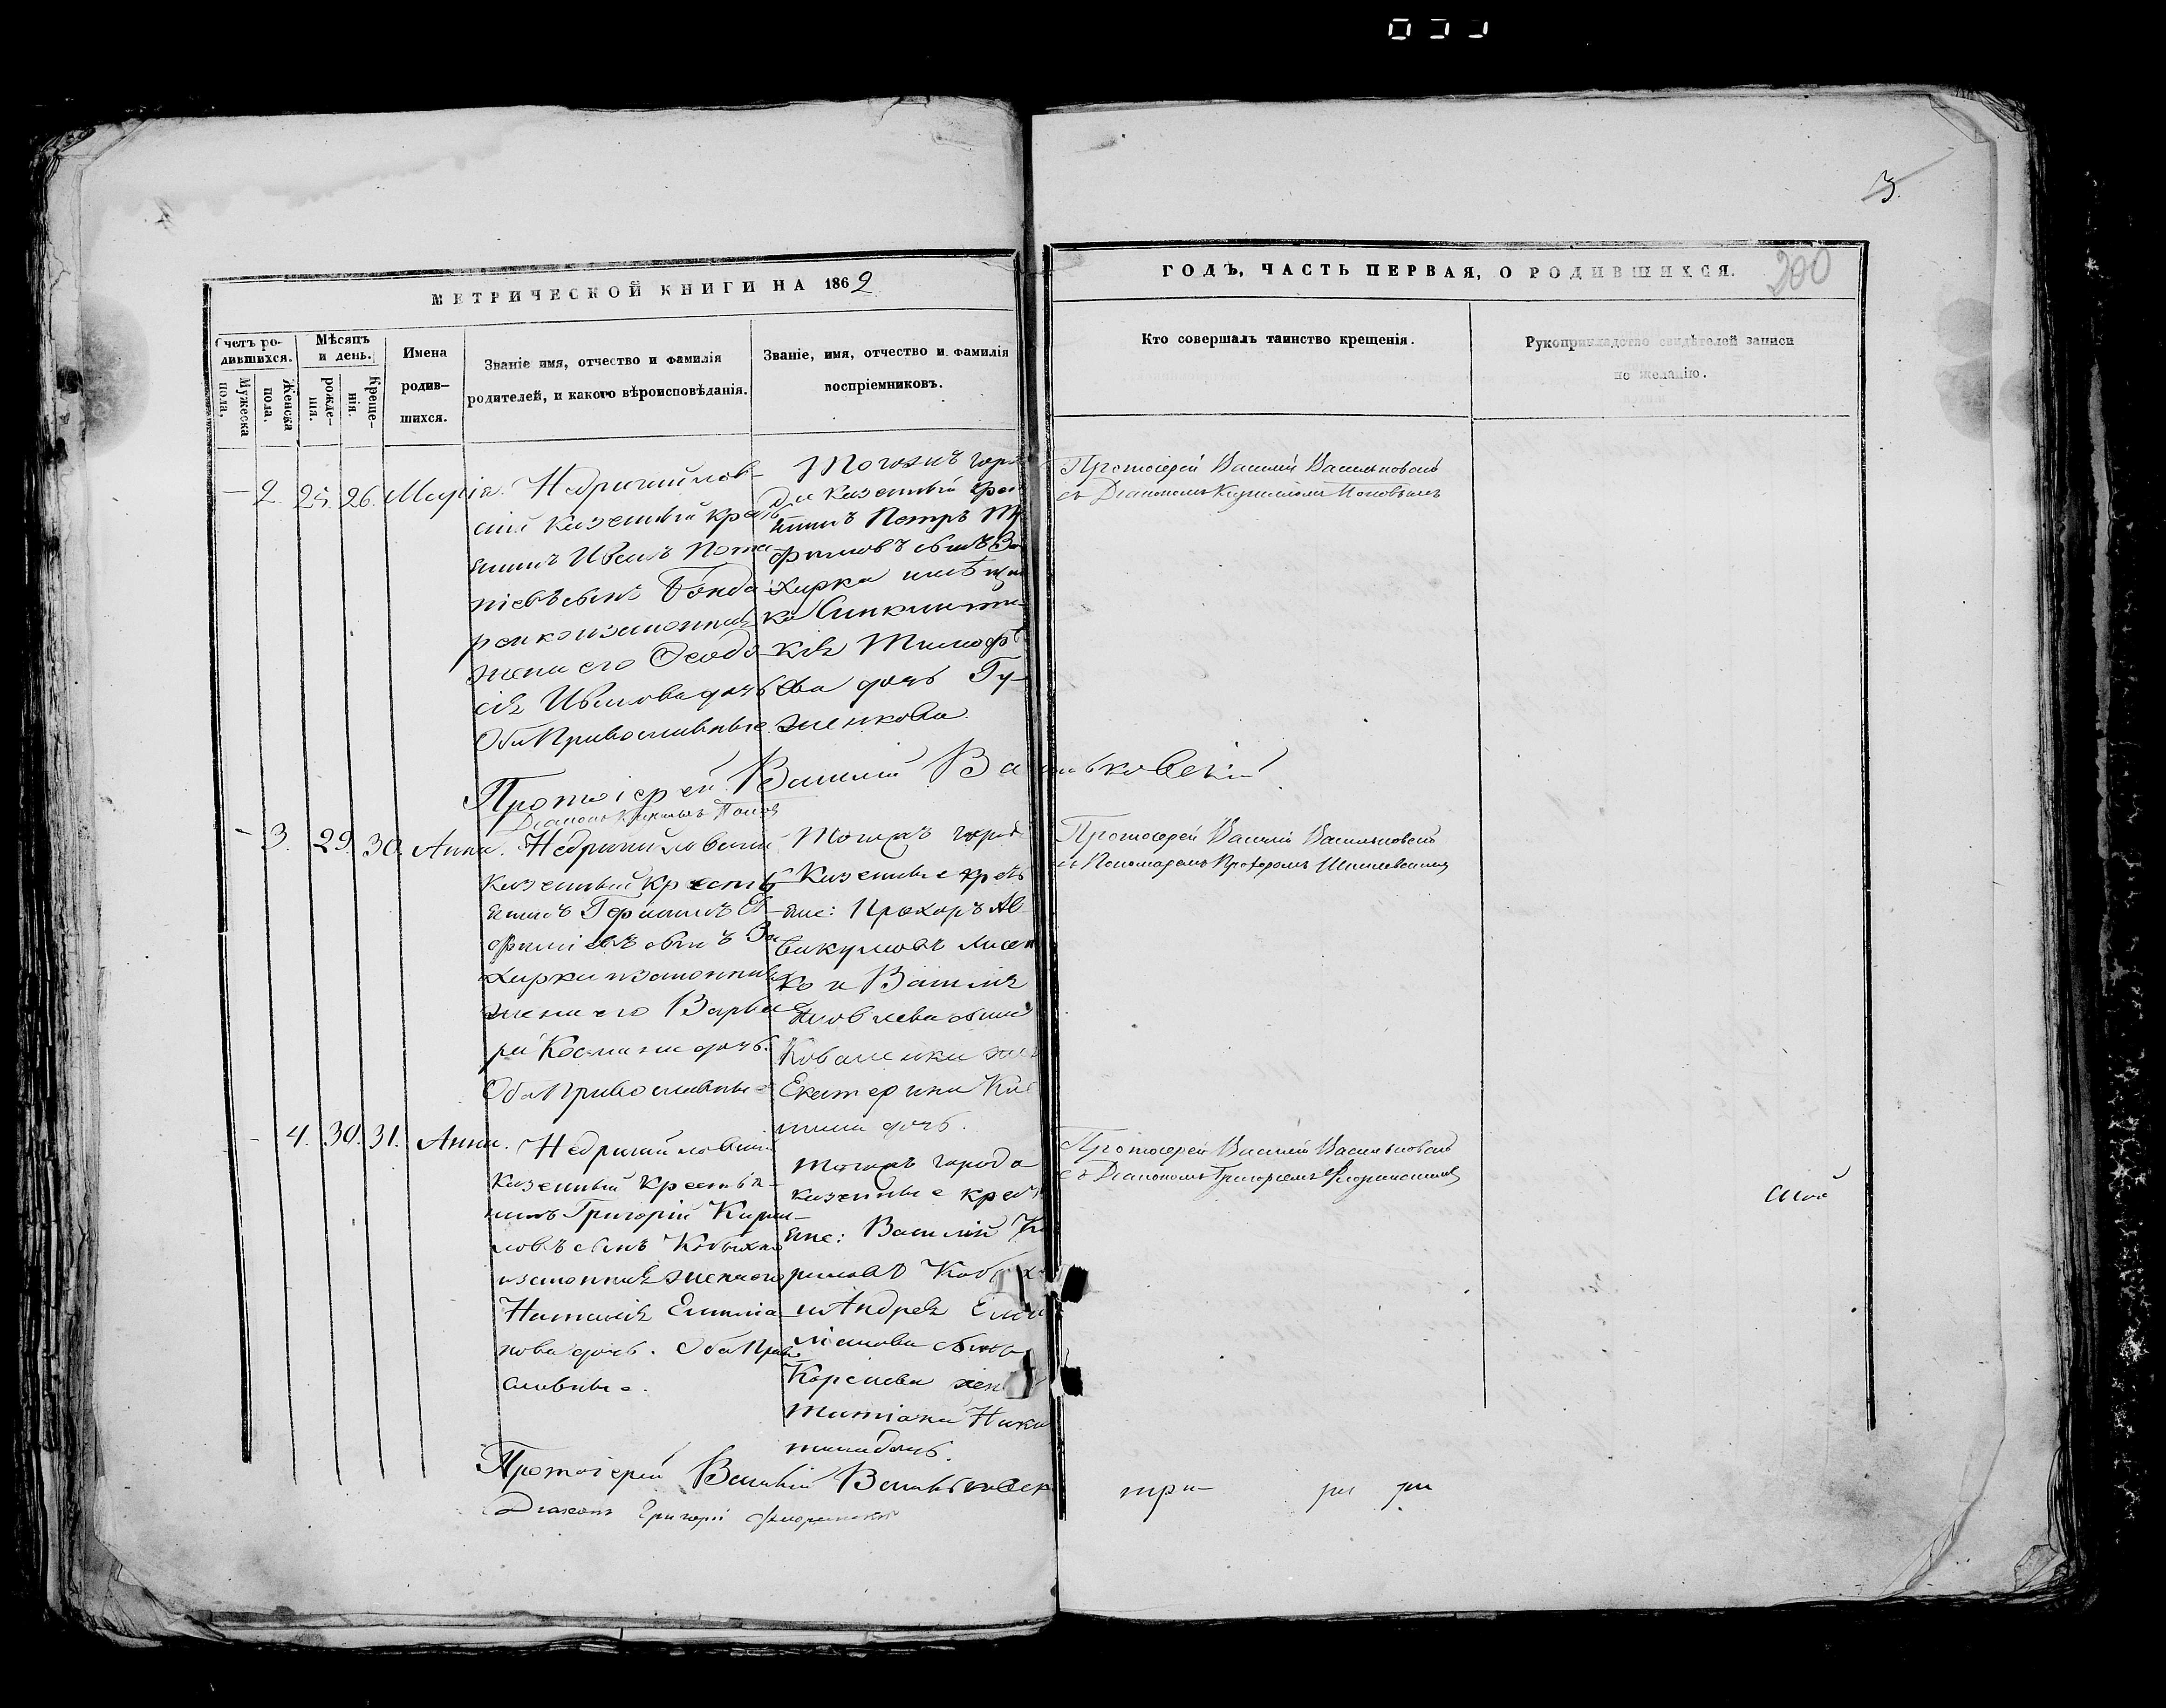 3.
МЕТРИЧЕСКОЙ КНИГИ НА 1862
ГОДЪ, ЧАСТЬ ПЕРВАЯ, О РОДИВШИХСЯ.
200
Счетъ ро-
дившихся.
Мужеска
пола.
Женска
пола.
Мѣсяцъ
и день.
рожде-
нія.
Креще-
нія.
Имена
родив-
шихся.
Званіе имя, отчество и фамилія
родителей, и какого вѣроисповѣданія.
Званіе, имя, отчество и фамилія
воспріемниковъ.
Кто совершалъ таинство крещенія.
Рукоприкладство свидѣтелей записи
по желанію.
2. 25. 26. Марія.
Недригайлов-
скій казенный крестъ
янинъ Иванъ Пота
піевъ сынъ Бонда
ренко изаконная
жена его Феодо
сія Иванова дочь
Оба Православные
Тогожъ горо
да казенный крес
янинъ Петръ Тр
фимовъ сынъ За
харка имѣщан
ка
кія Тимофѣ
ева дочь Гу-
женкова.
Протоіерей Василій Васильковскій
съ Діакономъ Кирилломъ Поповымъ
Протоіерей Василій Васильковскій
Діаконъ Кириллъ Поповъ
3. 29. 30. Анна.
Недригайловскій
казенный крестья
янинъ Герасимъ Ев
фиміевъ сынъ За
харка изаконная
жена его Варва
ра Космина дочь.
Оба Православные
Тогожъ города
Казенные кресть
яне: Прохоръ Ав
вакумовъ Лисен
ко и Василія
Яковлева сына
Коваленка жена
Екатерина Ни
тина дочь.
Протоіерей Василій Васильковскій
съ Пономаремъ Прохоромъ
4. 30. 31. Анна.
Недригайловскій
казенный крестья-
нинъ Григорій Кирил-
ловъ сынъ Кобыхно
изаконная жена его
Наталія Емилiа
нова дочь. Оба Право
славные.
Тогожъ города
казенные крестъ
яне: Василій Ки
риловъ Кобыхно
и Андрея Еми
ліанова сына
Корсиева жена
Татіана Ники
тина дочь.
Протоіерей Василій Васильковскій
съ Діакономъ Григоріемъ Флоринскимъ
Протоіерей Василій Васильковск
Діаконъ Григорій Флоринскій
три- ри ри